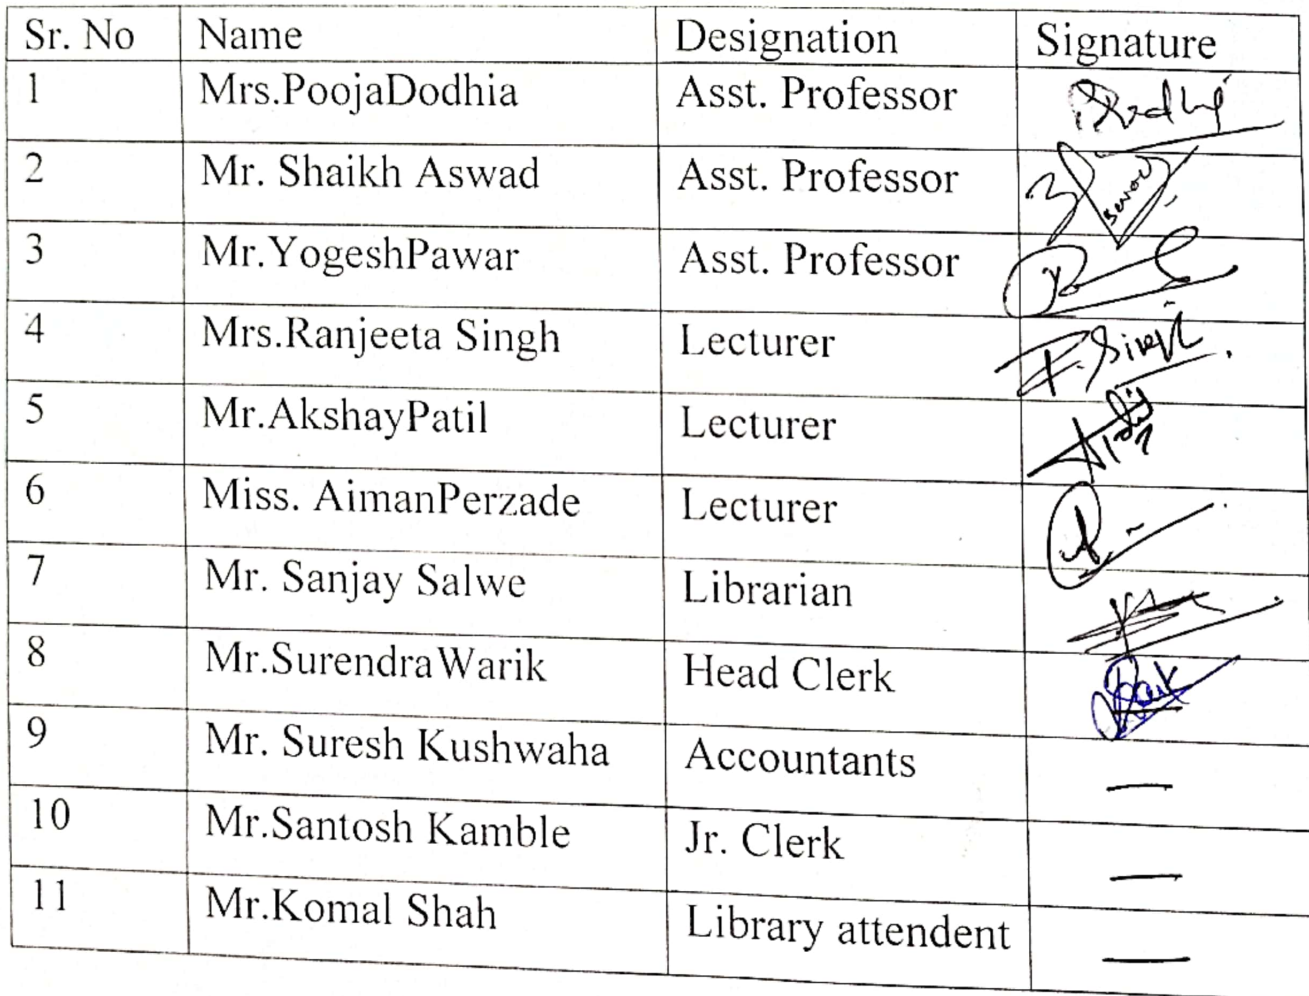 Sr. No Name Designation Signature
1 Mrs.PoojaDodhia Asst. Professor
2 Mr. Shaikh Aswad Asst. Professor
3 Mr.YogeshPawar Asst. Professor
4 Mrs.Ranjeeta Singh Lecturer
5 Mr.AkshayPatil Lecturer
6 Miss. AimanPerzade Lecturer
7 Mr. Sanjay Salwe Librarian
8 Mr.SurendraWarik Head Clerk
9 Mr. Suresh Kushwaha Accountants —
10 Mr.Santosh Kamble Jr. Clerk —
11 Mr.Komal Shah Library attendent —